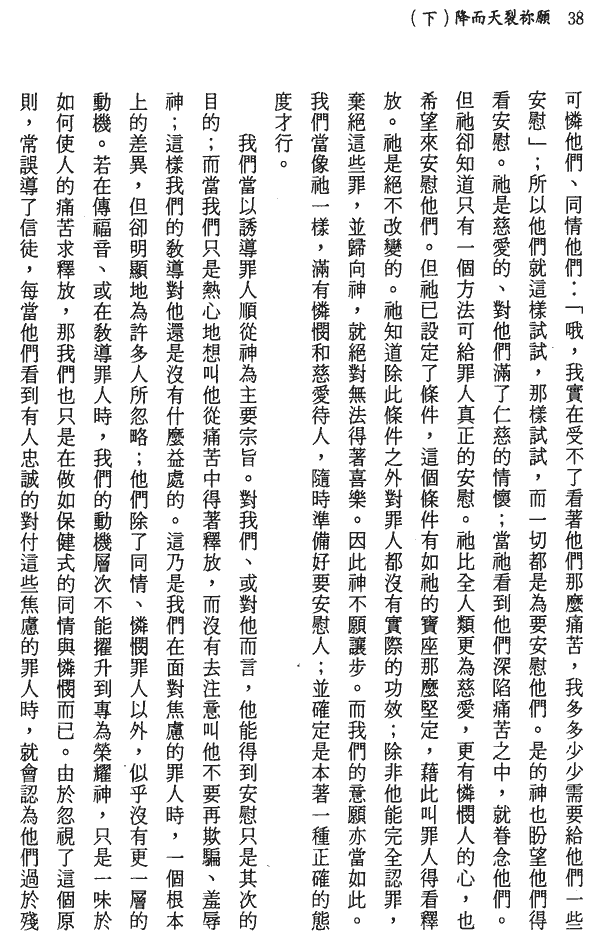 38 願祢裂天而降（下）
可憐他們、同情他們：「哦，我實在受不了看著他們那麼痛苦，我多多少少需要給他們一些
安慰」；所以他們就這樣試試，那樣試試，而一切都是為要安慰他們。是的神也盼望他們得
看安慰。祂是慈愛的、對他們滿了仁慈的情懷；當祂看到他們深陷痛苦之中，就眷念他們。
但祂卻知道只有一個方法可給罪人真正的安慰。祂比全人類更為慈愛，更有憐憫人的心，也
希望來安慰他們。但祂已設定了條件，這個條件有如祂的寶座那麼堅定，藉此叫罪人得看釋
放。祂是絕不改變的。祂知道除此條件之外對罪人都沒有實際的功效；除非他能完全認罪，
棄絕這些罪，並歸向神，就絕對無法得著喜樂。因此神不願讓步。而我們的意願亦當如此。
我們當像祂一樣，滿有憐憫和慈愛待人，隨時準備好要安慰人；並確定是本著一種正確的態
度才行。
我們當以誘導罪人順從神為主要宗旨。對我們、或對他而言，他能得到安慰只是其次的
目的；而當我們只是熱心地想叫他從痛苦中得著釋放，而沒有去注意叫他不要再欺騙、羞辱
神；這樣我們的教導對他還是沒有什麼益處的。這乃是我們在面對焦慮的罪人時，一個根本
上的差異，但卻明顯地為許多人所忽略；他們除了同情、憐憫罪人以外，似乎沒有更一層的
動機。若在傳福音、或在教導罪人時，我們的動機層次不能擢升到專為榮耀神，只是一味於
如何使人的痛苦求釋放，那我們也只是在做如保健式的同情與憐憫而已。由於忽視了這個原
則，常誤導了信徒，每當他們看到有人忠誠的對付這些焦慮的罪人時，就會認為他們過於殘